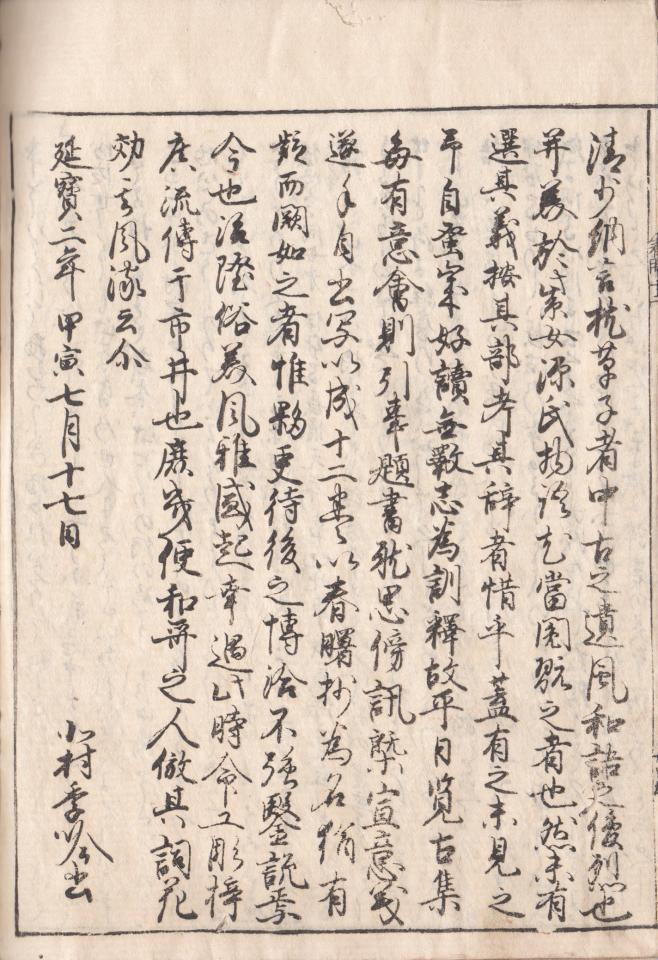 清少納言枕草子者中古之遺風和語之俊烈也
并義於紫女源氏物語尤當閲翫之者也然未有
選其義按其部考其辞者惜乎蓋有之未見之
予自蚤歳好讀無斁志為訓釋故平日覧古集
毎有意會則引事題書就思傍訊槩宣意義
遂手自書写以成十二巻以春曙抄為名猶有
疑而闕如之者惟夥更待後之博洽不強鑿説焉
今也治隆俗美風雅盛起幸遇此時命工彫梓
廣流傳于市井也庶幾便和哥之人倣其詞花
効之風流云尒
延寶二年甲寅七月十七日
北村季吟書